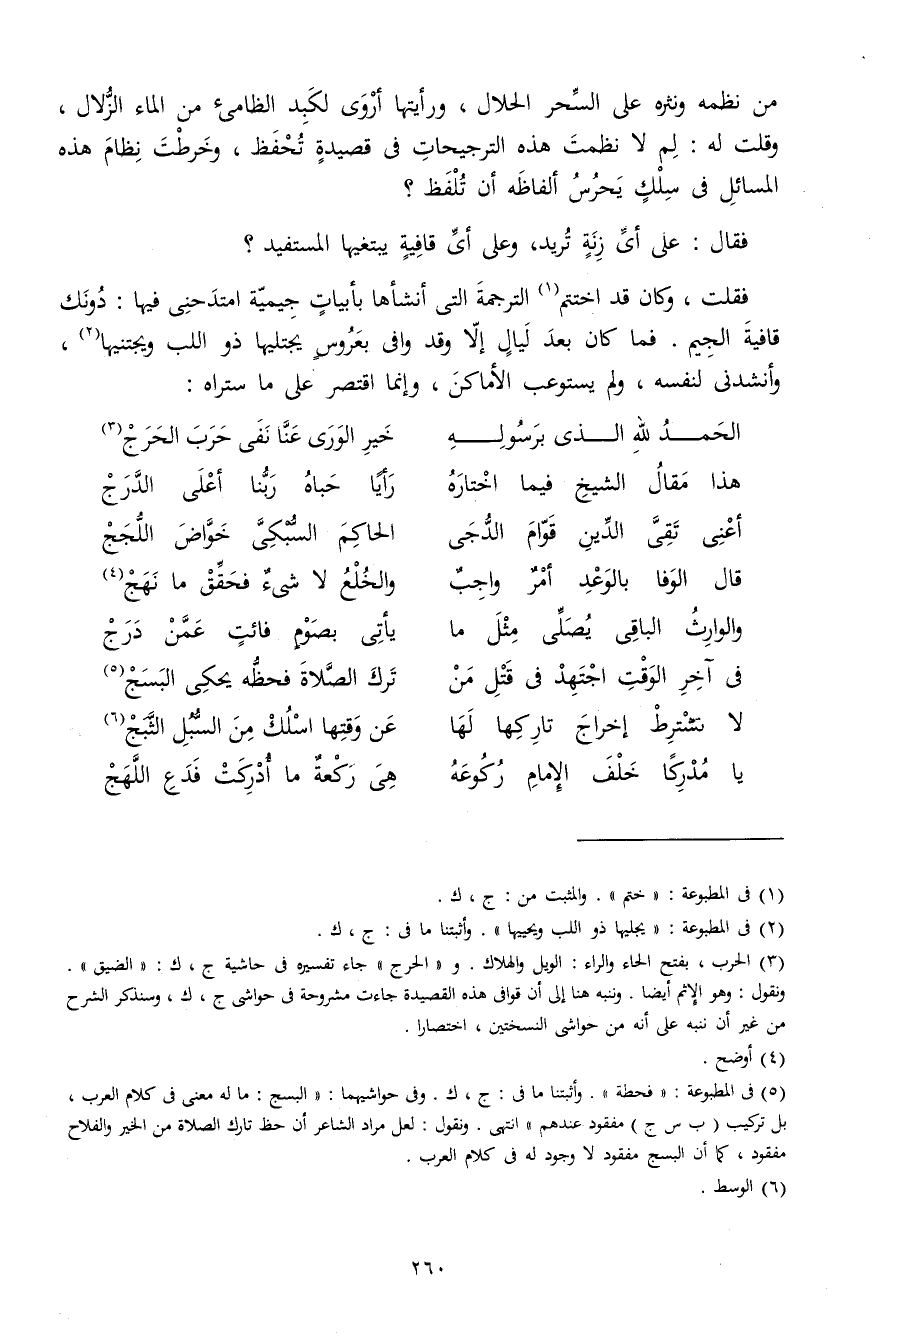 من نظمه ونثره على السِّحر الحلال ، ورأيتها أرْوَى لكَبِد الظامىء من الماء الزُّلال ،
وقلت له : لِم لا نظمتَ هذه الترجيحاتِ فى قصيدةٍ تُحْفَظ ، وخَرطْتَ نِظامَ هذه
المسائلِ فى سِلْكٍ يَحرُسُ ألفاظَه أن تُلْفَظ ؟
فقال : على أىِّ زِنَةٍ تُريد، وعلى أىِّ قافيةٍ يبتغيها المستفيد ؟
فقلت ، وكان قد اختتم(١) الترجمةَ التى أنشأها بأبياتٍ جِيميّة امتدَحنِى فيها : دُونَك
قافيةَ الجِيم . فما كان بعدَ لَيالٍ إلّا وقد وافى بعَرُوسٍ يجتليها ذو اللب ويجتنيها(٢) ،
وأنشدنى لنفسه ، ولم يستوعب الأماكنَ ، وإنما اقتصر على ما ستراه :
الحَمـــدُ للهِ الـــذى برَسُولِـــهِ خَيرِ الوَرَى عَنَّا نَفَى حَرَبَ الحَرَجْ(٣)
هذا مَقالُ الشيخِ فيما اخْتارَهُ رَأيًا حَباهُ رَبُّنا أعْلَى الدَّرَجْ
أعْنِى تَقِىَّ الدِّينِ قَوّامَ الدُّجَى الحاكِمَ السُّبْكِىَّ خَوَّاضَ اللُّجَجْ
قال الوَفا بالوَعْدِ أمْرٌ واجِبٌ والخُلْعُ لا شىءٌ فحَقِّقْ ما نَهَجْ(٤)
والوارِثُ الباقِى يُصَلِّى مِثْلَ ما يأتِى بصَوْمٍ فائتٍ عَمَّنْ دَرَجْ
فى آخِرِ الوَقْتِ اجْتَهِدْ فى قَتْلِ مَنْ تَرَكَ الصَّلاةَ فحظُّه يحكِى البَسَجْ(٥)
لا تشْترِطْ إخراجَ تارِكِها لَهَا عَن وَقتِها اسْلُكْ مِنَ السُّبُلِ الثَّبَجْ(٦)
يا مُدْرِكًا خَلْفَ الإمامِ رُكُوعَهُ هِىَ رَكْعةٌ ما أُدْرِكَتْ فَدَعِ اللَّهَجْ
(١) فى المطبوعة : « ختم » . والمثبت من : ج ، ك .
(٢) فى المطبوعة : « يجليها ذو اللب ويحييها » . وأثبتنا ما فى : ج ، ك .
(٣) الحرب ، بفتح الحاء والراء : الويل والهلاك . و « الحرج » جاء تفسيره فى حاشية ج ، ك : « الضيق » .
ونقول : وهو الإثم أيضا . وننبه هنا إلى أن قوافى هذه القصيدة جاءت مشروحة فى حواشى ج ، ك ، وسنذكر الشرح
من غير أن ننبه على أنه من حواشى النسختين ، اختصارا .
(٤) أوضح .
(٥) فى المطبوعة : « فحطة » . وأثبتنا ما فى : ج ، ك . وفى حواشيهما : « البسج : ما له معنى فى كلام العرب ،
بل تركيب ( ب س ج ) مفقود عندهم » انتهى . ونقول : لعل مراد الشاعر أن حظ تارك الصلاة من الخير والفلاح
مفقود ، كما أن البسج مفقود لا وجود له فى كلام العرب .
(٦) الوسط .
٢٦٠